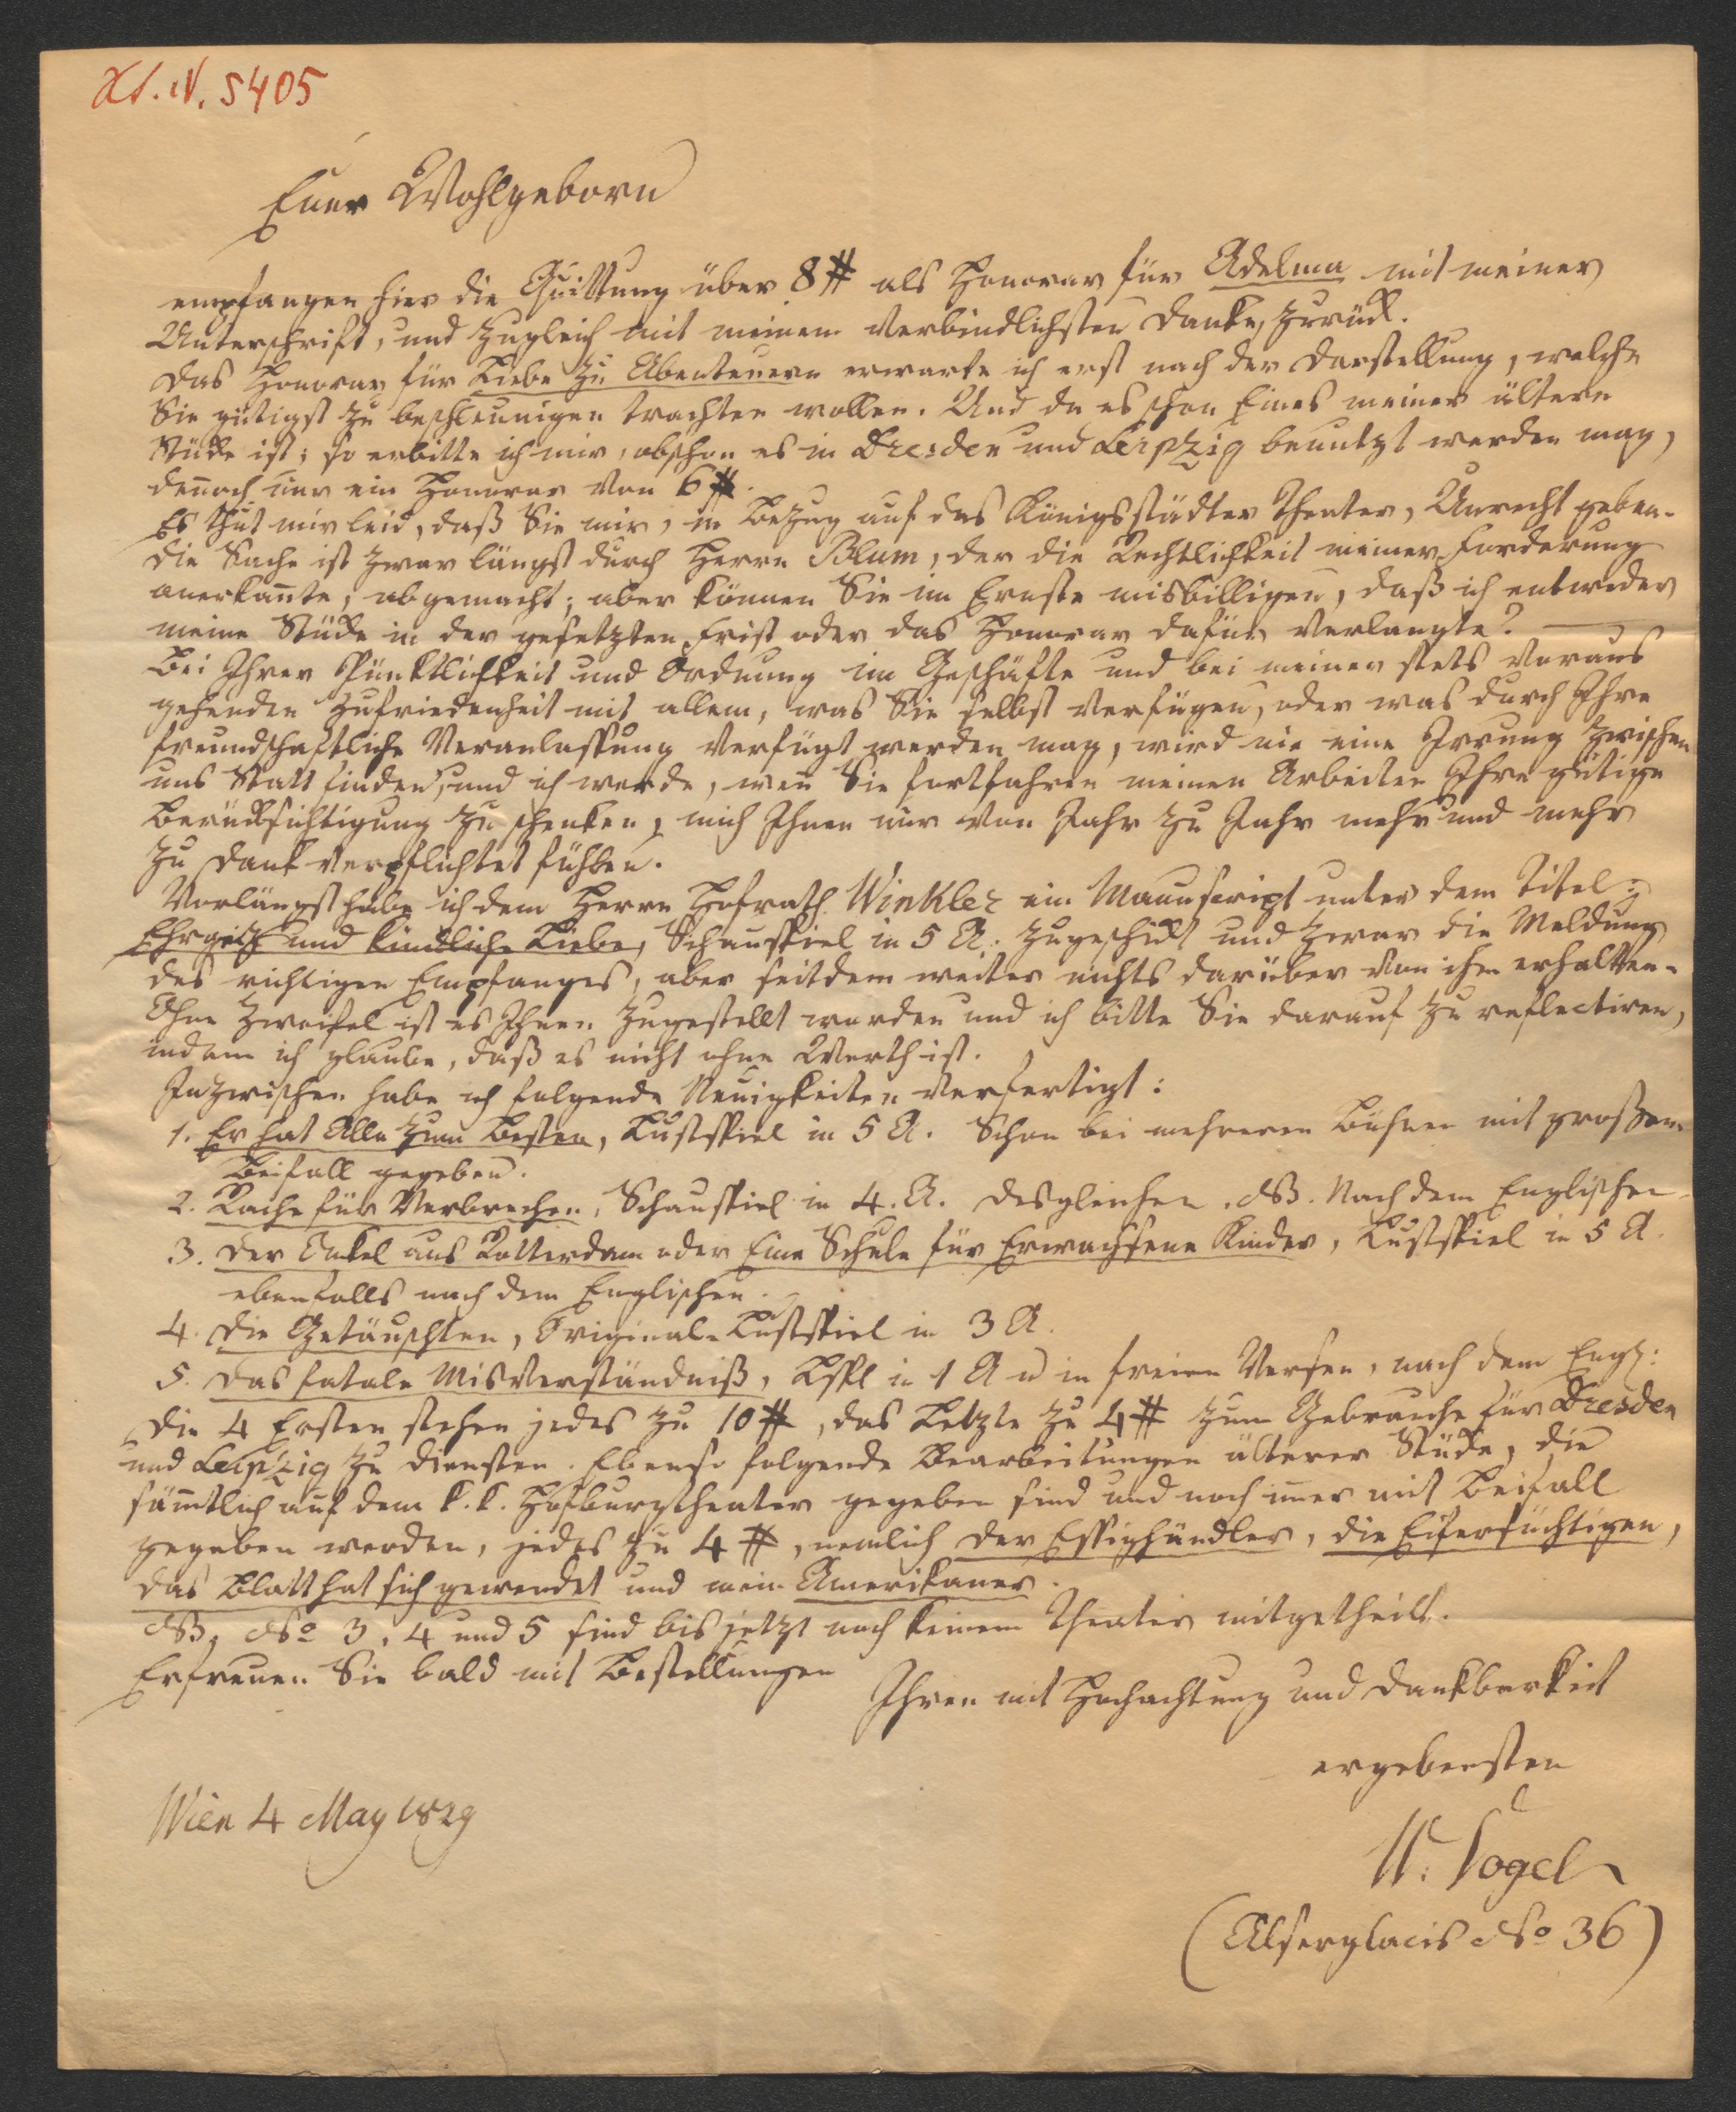 XI. IV. 5405
Euer Wohlgeborn
empfangen hier die Quittung über 8 # als Honorar für Adelma mit meiner
Unterschrift, und zugleich mit meinem verbindlichsten Danke, zurück.
Das Honorar für Liebe zu Abenteuern erwarte ich erst nach der Darstellung, welche
Sie gütigst zu beschleunigen trachten wollen. Und da es schon Eines meiner ältern
Stücke ist; so erbitte ich mir, obschon es in Dresden und Leipzig benutzt werden mag,
deñoch nur ein Honorar von 6 #.
Es thut mir leid, daß Sie mir, in Bezug auf das Königsstädter Theater, Unrecht geben.
Die Sache ist zwar längst durch Herrn Blum, der die Rechtlichkeit meiner Forderung
anerkañte, abgemacht; aber können Sie im Ernste misbilligen, daß ich entweder
meine Stücke in der gesetzten Frist oder das Honorar dafür verlangte? —
Bei Ihrer Pünktlichkeit und Ordnung im Geschäfte und bei meiner stets voraus
gehenden Zufriedenheit mit allem, was Sie selbst verfügen, oder was durch Ihre
freundschaftliche Veranlassung verfügt werden mag, wird nie eine Irrung zwischen
uns Statt finden, und ich werde, weñ Sie fortfahren meinen Arbeiten Ihre gütige
Berücksichtigung zu schenken, mich Ihnen nur von Jahr zu Jahr mehr und mehr
zu Dank verpflichtet fühlen.
Vorlängst habe ich dem Herrn Hofrath Winkler ein Manuscript unter dem Titel:
Ehrgeitz und kindliche Liebe, Schauspiel in 5 A. zugeschickt und zwar die Meldung
des richtigen Empfanges, aber seitdem weiter nichts darüber von ihm erhalten.
Ohne Zweifel ist es Ihnen zugestellt worden und ich bitte Sie darauf zu reflectiren,
indem ich glaube, daß es nicht ohne Werth ist.
Inzwischen habe ich folgende Neuigkeiten verfertigt:
1. Er hat Alle zum Besten, Lustspiel in 5 A. Schon bei mehreren Bühnen mit großem
Beifall gegeben.
2. Rache für Verbrechen, Schauspiel in 4. A. desgleichen. NB. Nach dem Englischen
3. Der Onkel aus Rotterdam oder Eine Schule für Erwachsene Kinder, Lustspiel in 5 A.
ebenfalls nach dem Englischen.
4. Die Getäuschten, Original-Lustspiel in 3 A.
5. Das fatale Misverständniß, Lspl in 1 A u in freien Versen, nach dem Engl:
Die 4 Ersten stehen jedes zu 10 #, das Letzte zu 4 # zum Gebrauche für Dresden
und Leipzig zu Diensten. Ebenso folgende Bearbeitungen älterer Stücke, die
säm̃tlich auf dem k. k. Hofburgtheater gegeben sind und noch im̃er mit Beifall
gegeben werden, jedes zu 4 #, nemlich Der Essighändler, die Eifersüchtigen,
das Blatt hat sich gewendet und mein Amerikaner.
NB. No 3, 4 und 5 sind bis jetzt noch keinem Theater mitgetheilt.
Erfreuen Sie bald mit Bestellungen
Ihren mit Hochachtung und Dankbarkeit
ergebensten
W. Vogel
Wien 4 May 1829
(Alserglacis No 36)